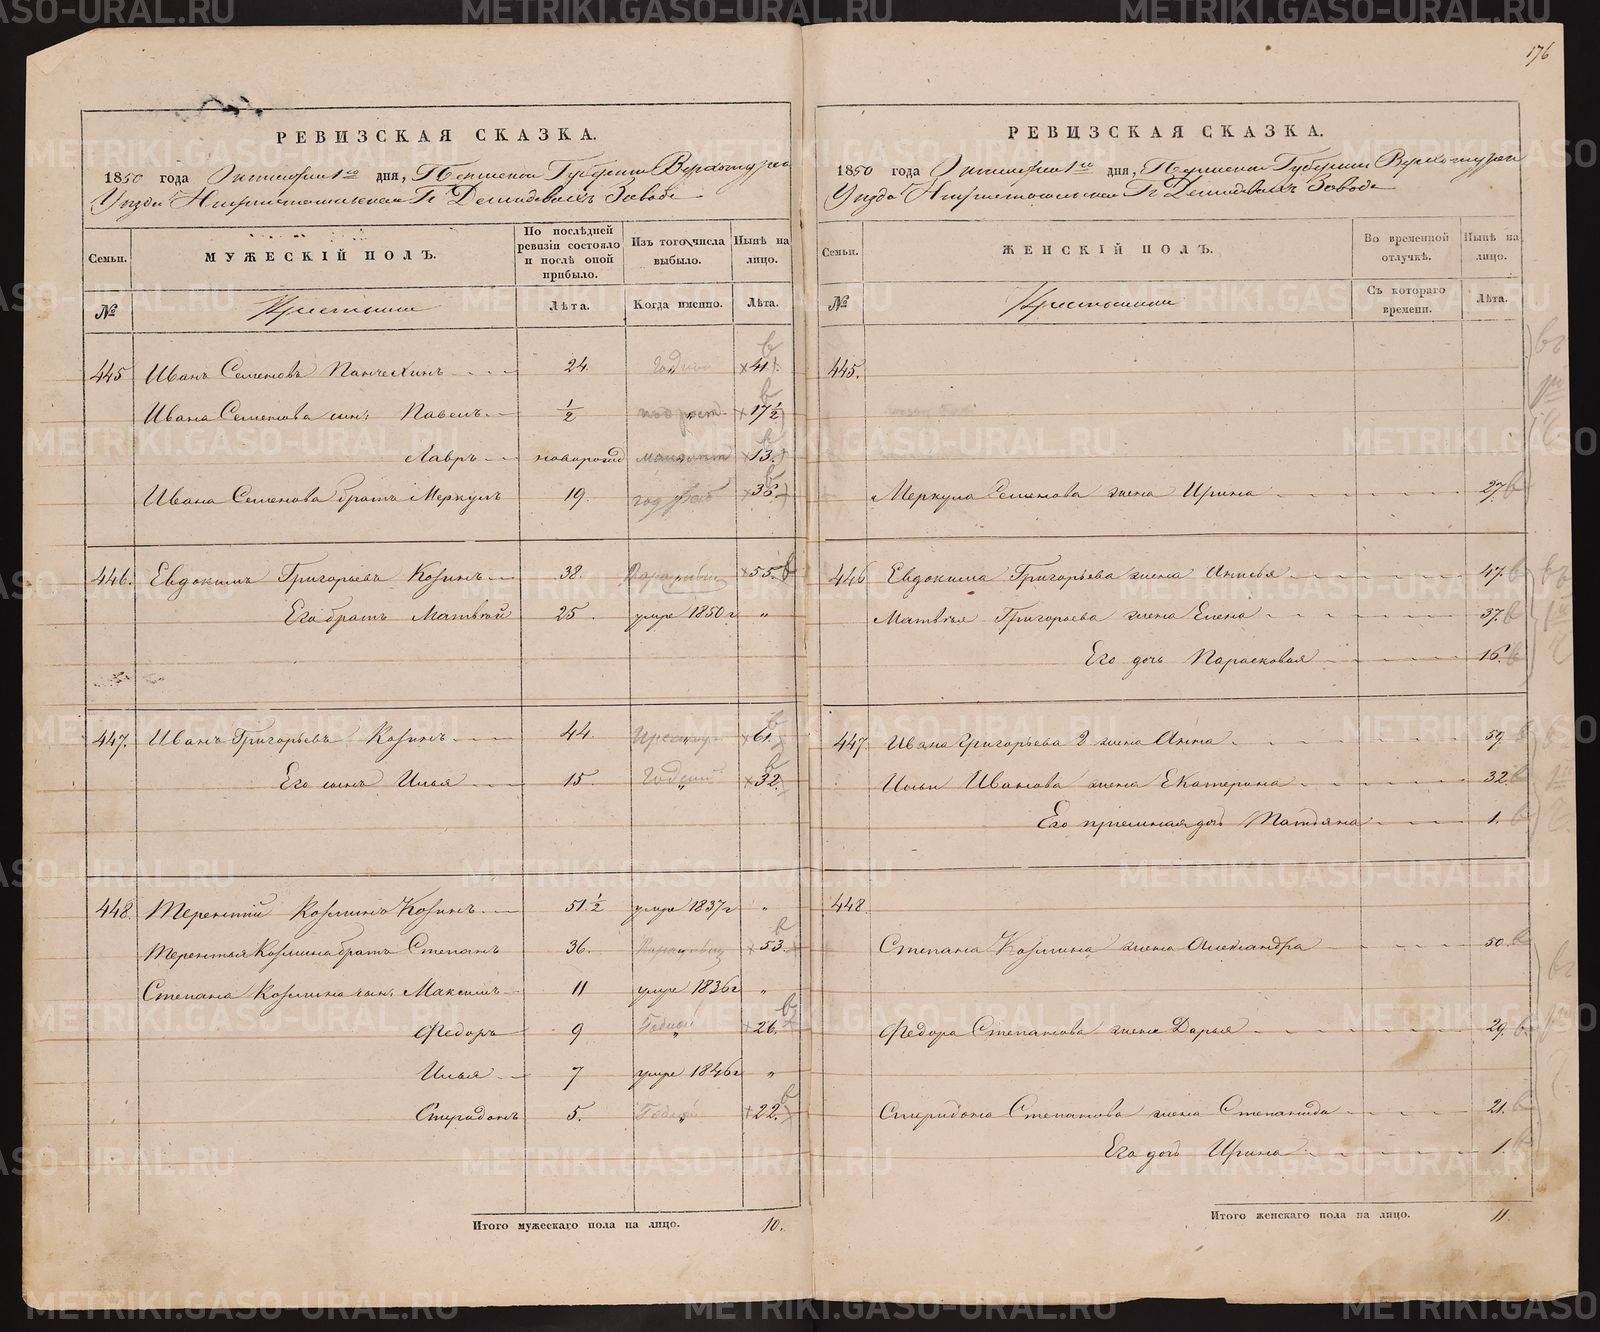 176
РЕВИЗСКАЯ СКАЗКА.
1850 года Октября 1го дня, Пермской Губернии Верхотурскаго
Уезда Нижнетагильском Гг Демидовых Заводе
Семьи. МУЖЕСКІЙ ПОЛЪ. По послѣдней ревизіи состояло и послѣ оной прибыло. Изъ того числа выбыло. Нынѣ на лицо.
№ Крестьяне Лѣта. Когда именно. Лѣта.
445 Иванъ Семеновъ 24. Годной 41.
Ивана Семенова сын: Павелъ 1/2 подрост 17 1/2
Лавръ новорожд 13.
Ивана Семенова братъ Меркулъ 19. 36
446. Евдокимъ Григорьевъ Козинъ 38. 55.
Его братъ Матвѣй 25. умре 1850 г "
447. Иванъ Григорьевъ Козинъ 44. 61.
Его сынъ Илья 15. Годной 32.
448. Терентий Козминъ Козинъ 51 1/2 умре 1837 г "
Терентья Козмина братъ Степанъ 36. 53.
Степана Козмина сын: Максимъ 11 умре 1836 г "
Федоръ 9 Годной 26.
Илья 7 умре 1846 г "
Спиридонъ 5. Годной 22.
Итого мужескаго пола на лицо. 10.
РЕВИЗСКАЯ СКАЗКА.
1850 года Октября 1го дня, Пермской Губернии Верхотурскаго
Уезда Нижнетагильском Гг Демидовых Заводе
Семьи. ЖЕНСКІЙ ПОЛЪ. Во временной отлучкѣ. Нынѣ на лицо.
№ Крестьянки Съ котораго времени. Лѣта.
445.
Меркула Семенова жена Ирина 27.
446 Евдокима Григорьева жена Анисья 47.
Матвѣя Григорьева жена Елена 37.
Его дочь Парасковья 16.
447. Ивана Григорьева 2 жена Анна 59.
Ильи Иванова жена Екатерина 32.
Его приемная дочь Татьяна 1.
448.
Степана Козмина жена Александра 50.
Федора Степанова жена Дарья 29.
Спиридона Степанова жена Степанида 21.
Его дочь Ирина 1.
Итого женскаго пола на лицо. 11.
METRIKI.GASO-URAL.RU